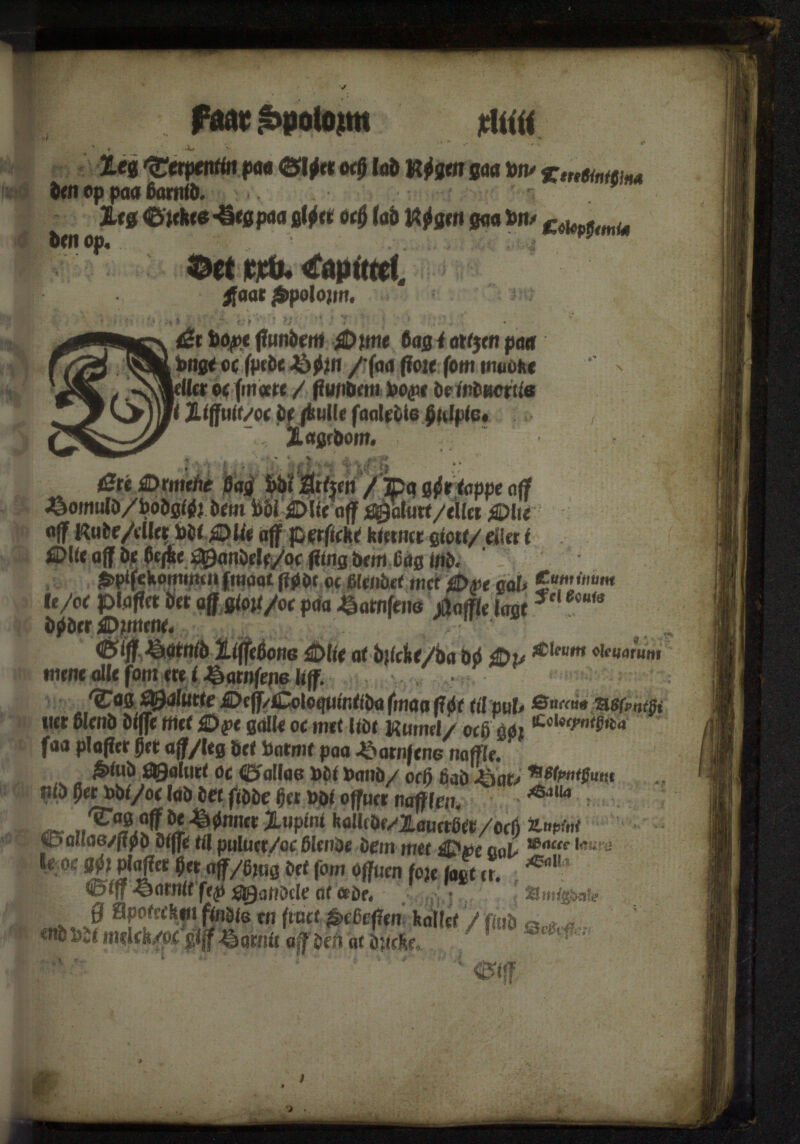 Faar Spolorm xliiii
Leg Terpentin paa Gløer och lad Røgen gaa vn/ Terebinthina
den op paa Barnid.
Leg Grekes Beg paa gløer och lad Røgen gaa vn/ Colophonia
den op.
Det xxv. Capittel.
Faar Spolorm.
Er vore stundem Orme bag i artzen paa
vnge oc spede Børn / saa store som maddke
eller oc smaere / stundem vore de induortis
i Liffuit/oc de skulle saaledis hielpis.
Lagedom.
Ere Ormene bag vdi Artzen / Da gør tappe aff
Bomuld/vodgiør dem vdi Olie aff Malurt/eller Olie
aff Rude/eller vdi Olie aff Persicke kierner giort/ eller i
Olie aff de beske Mandele/oc sting dem bag ind.
Spisekommen smaat stødt oc blendet met Oxe gal/ Cuminum
le/oc plaster der aff giort/oc paa Barnsens Naffle lagt Fel bouis
døder Ormene.
Giff Barnid Liffebons Olie at dricke/da dø Or/ Oleum oleuarum
mene alle som ere i Barnsens liff.
Tag Malurte Oess/Coloquintida smaa støt til pul/ Succus Absynthi
uer blend disse met Oxe galle oc met lidt Kumel/ och gør Colocynthida
saa plaster her aff/leg det varmt paa Barnsens naffle.
Siud Malurt oc Gallas vdi vand/ och bad Bar/ Absynthum
nid her vdi/oc lad det sidde her vdi offuer nafflen. Galla
Tag aff de Bønner Lupini kallede/Lauerber/och Lupini
Gallas/stød disse til puluer/oc blende dem met Oxe gal/ Bacce lauri
le oc gør plaster her aff/brug det som offuen fore sagt er. Galla
Giff Barnit sex Mandele at æde. Amigdale
I Apotecken findis en fruct Sebesten kallet / siud Sebesten
end vdi melck/oc giff Barnit aff den at dricke.
Giff